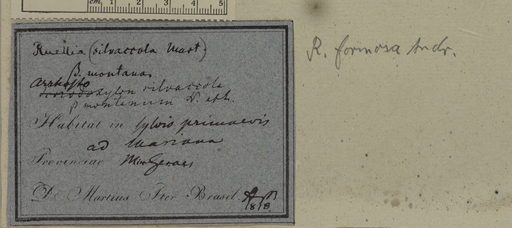 cm. 1 2 3 4 5
Ruellia (silvaccola Mart)
β. montana.
Arrhosto
xylon silvaccola
β montanum N. eth.
Habitat in sylvis primaevis
ad Mariana
Provinciae Min Geraes
D. Martius Iter Brasil
R. formosa Andr.